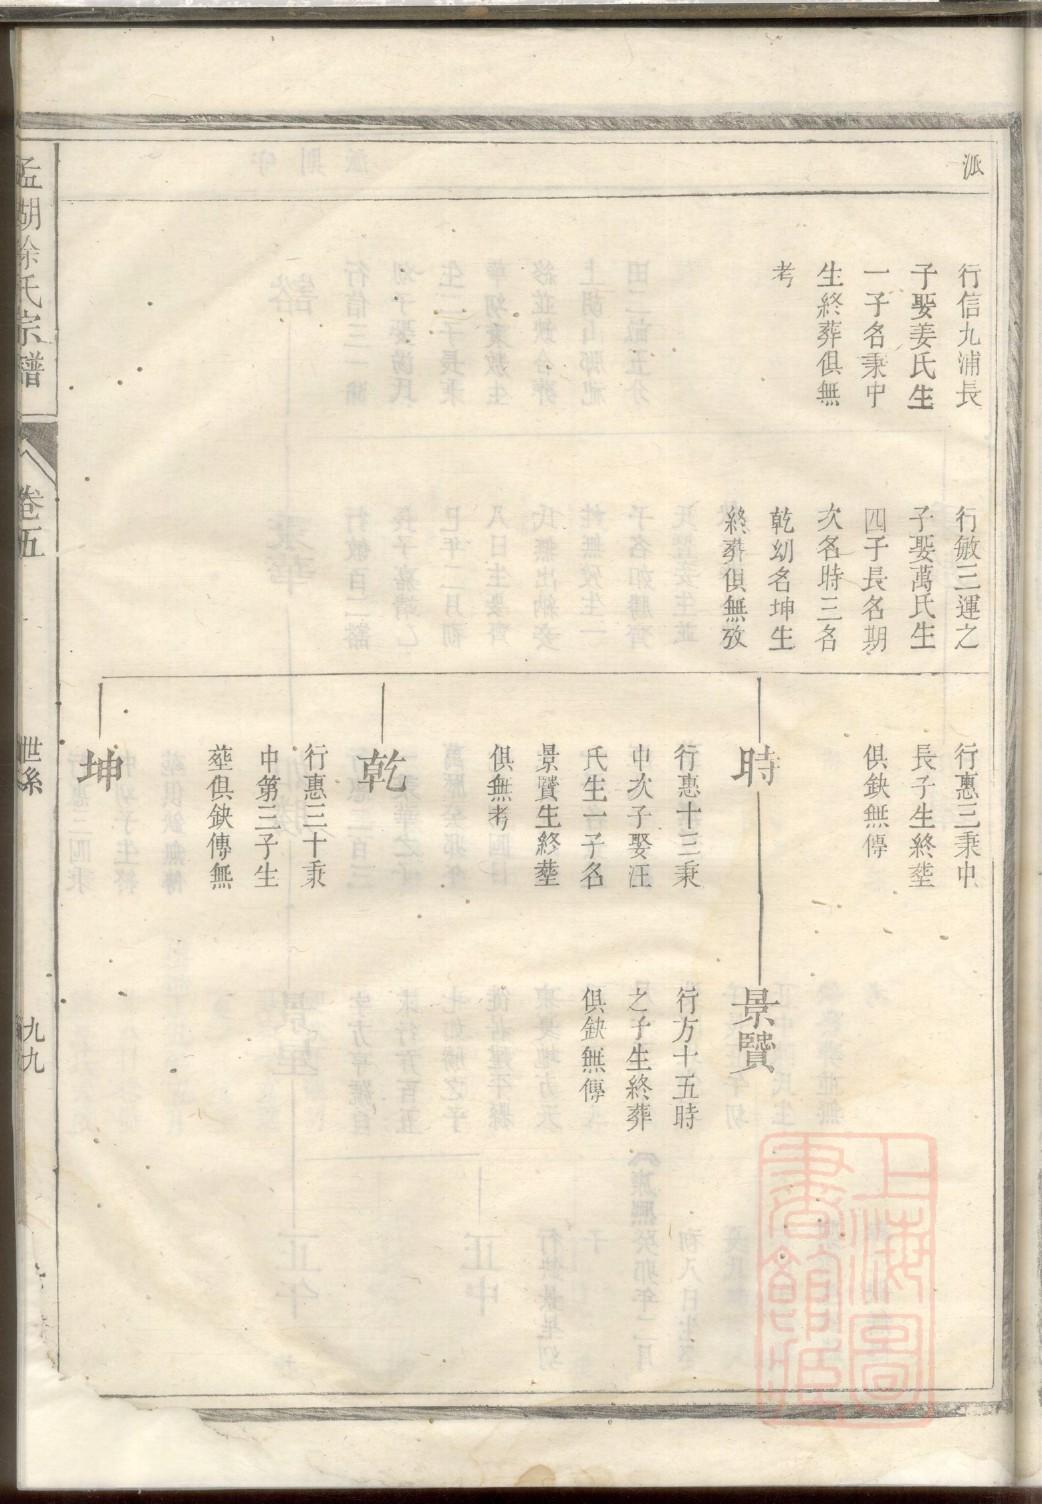 派
行信九浦長
子娶姜氏生
一子名秉中
生終葬俱無
考
行敏三運之
子娶萬氏生
四子長名期
次名時三名
乾幼名坤生
終葬俱無攷
行惠三秉中
長子生終塟
俱缺無傳
時
行惠十三秉
中次子娶汪
氏生一子名
景贒生終塟
俱無考
景贒
行方十五時
之子生終葬
俱缺無傳
乾
行惠三十秉
中第三子生
塟俱缺傳無
坤
孟湖徐氏宗譜
卷五
世系
九九
上海圖書館藏